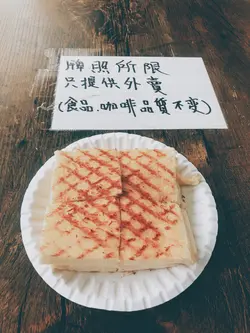 牌照所限
只提供外賣
(食品、咖啡品質不变)